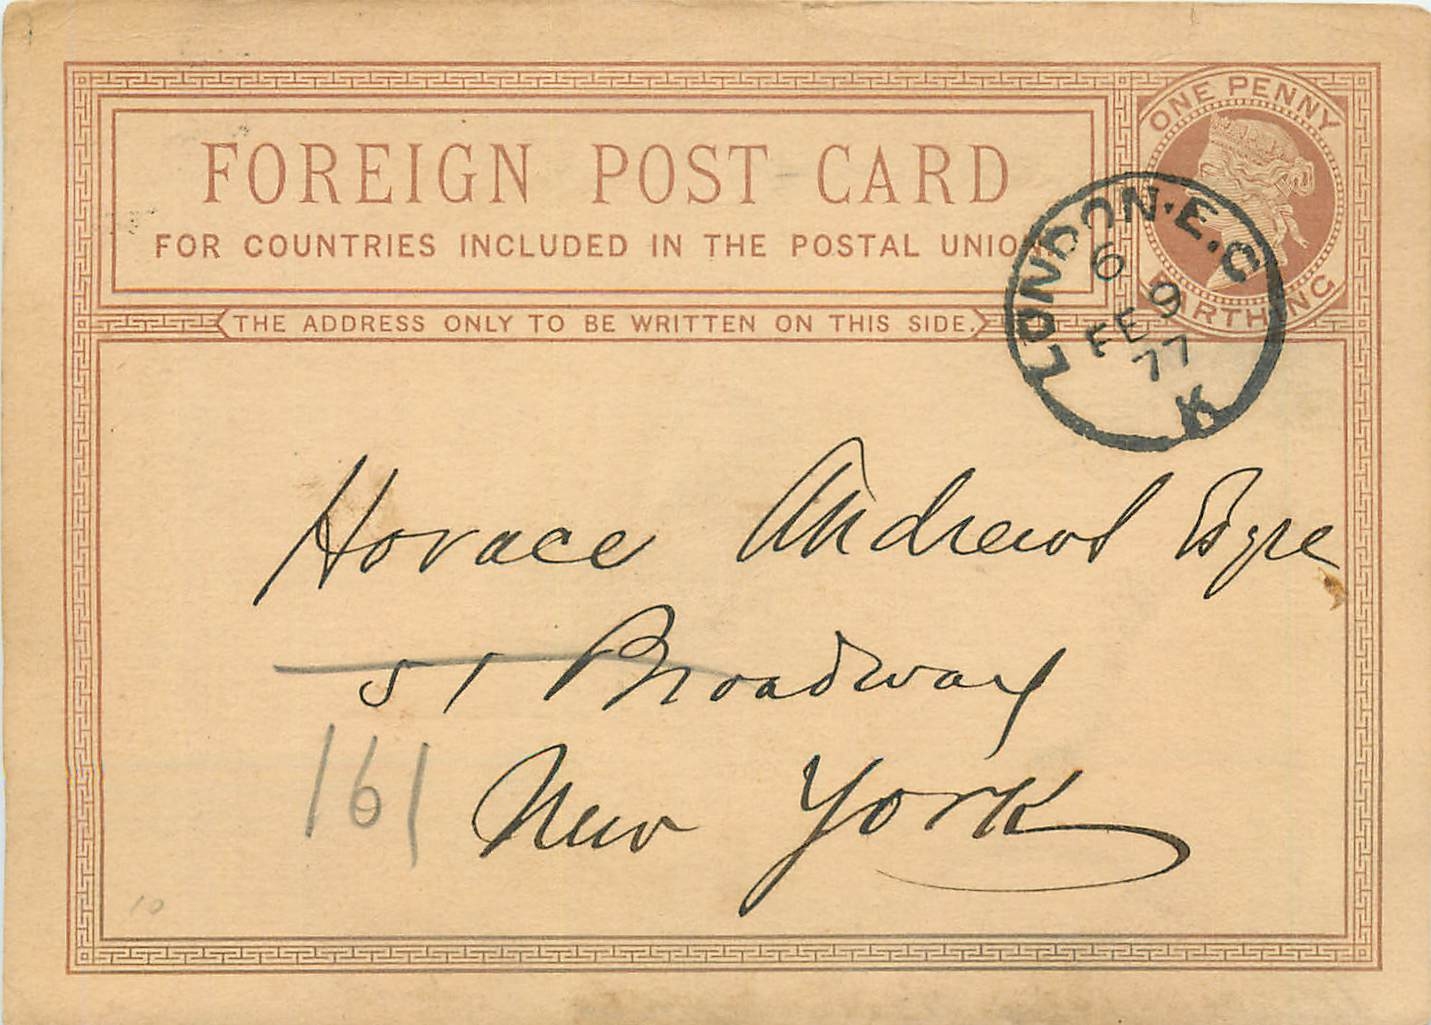 ONE PENNY
FARTHING
FOREIGN POST CARD
FOR COUNTRIES INCLUDED IN THE POSTAL UNIO
THE ADDRESS ONLY TO BE WRITTEN ON THIS SIDE.
LONDON·E.C
6
FE 9
77
K
Horace Andrews Esqre
51 Broadway
161
New York
10